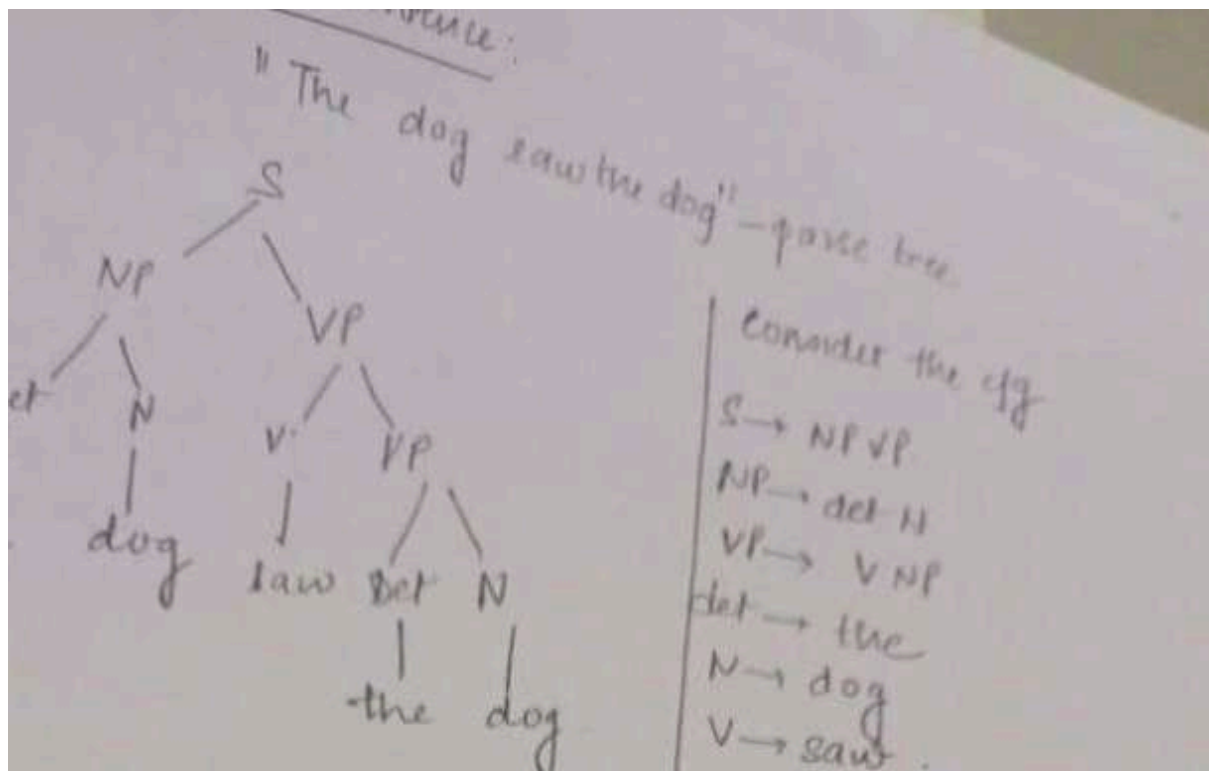 "The dog saw the dog" - parse tree
S
NP VP
et N V VP
dog saw Det N
the dog
Consider the cfg
S → NP VP
NP → det N
VP → V NP
det → the
N → dog
V → saw.